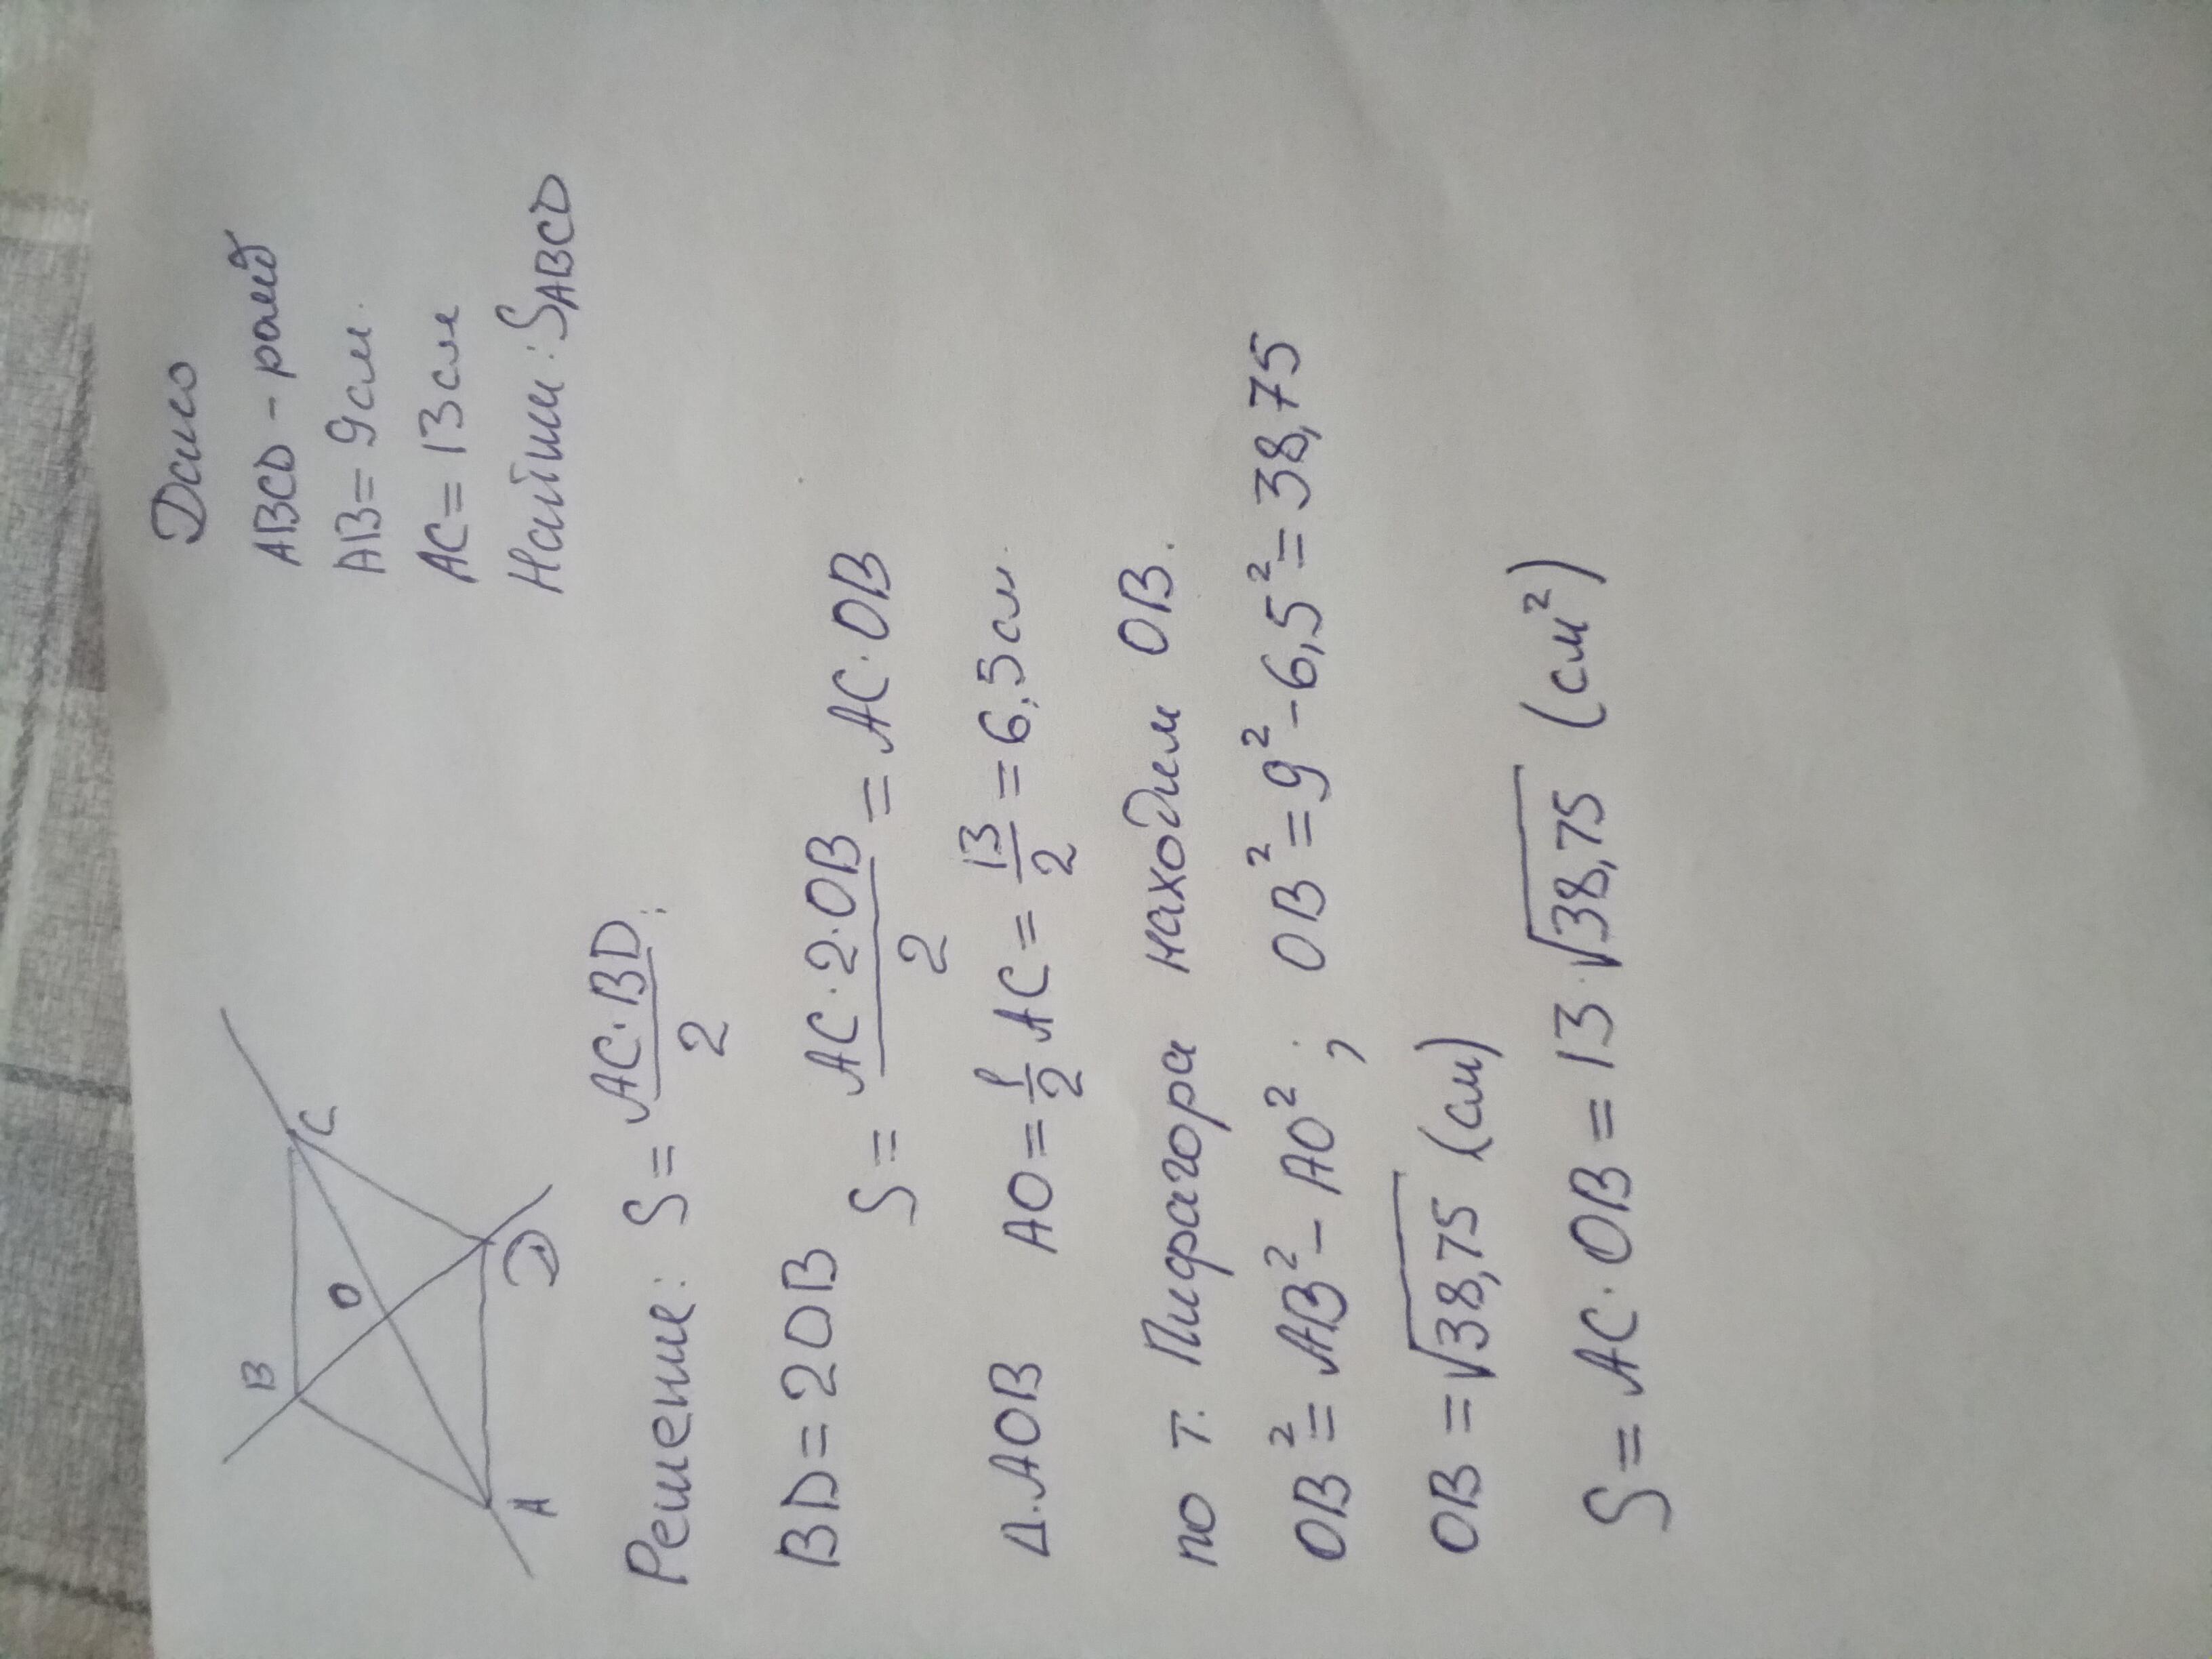 Дано
ABCD - ромб
AB = 9см.
AC = 13см
Найти: S_ABCD
B
C
O
A
D
Решение: S = AC·BD/2;
BD = 2OB
S = AC·2·OB/2 = AC·OB
Δ.AOB AO = 1/2 AC = 13/2 = 6,5см.
по т. Пифагора находим OB.
OB² = AB² - AO²; OB² = 9² - 6,5² = 38,75
OB = √38,75 (см)
S = AC·OB = 13·√38,75 (см²)